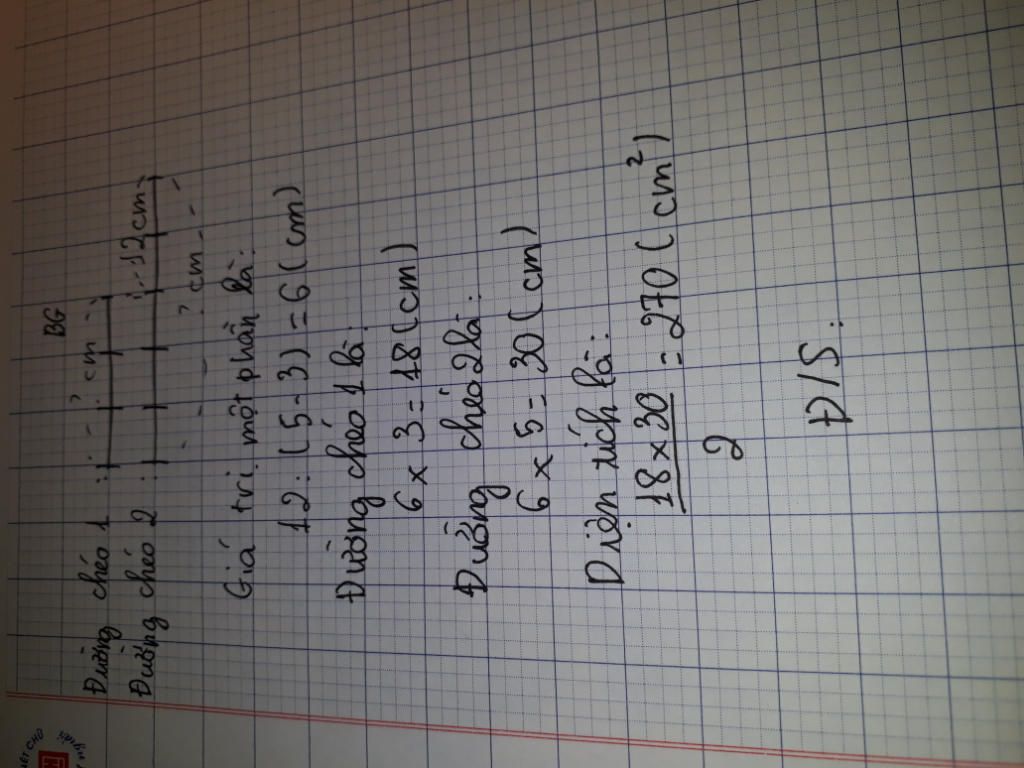 BG
Đường chéo 1 : ? cm
Đường chéo 2 : 12cm
? cm
Giá trị một phần là:
12 : (5-3) = 6 (cm)
Đường chéo 1 là:
6 x 3 = 18 (cm)
Đường chéo 2 là:
6 x 5 = 30 (cm)
Diện tích là:
18 x 30
= 270 (cm²)
2
Đ/S: